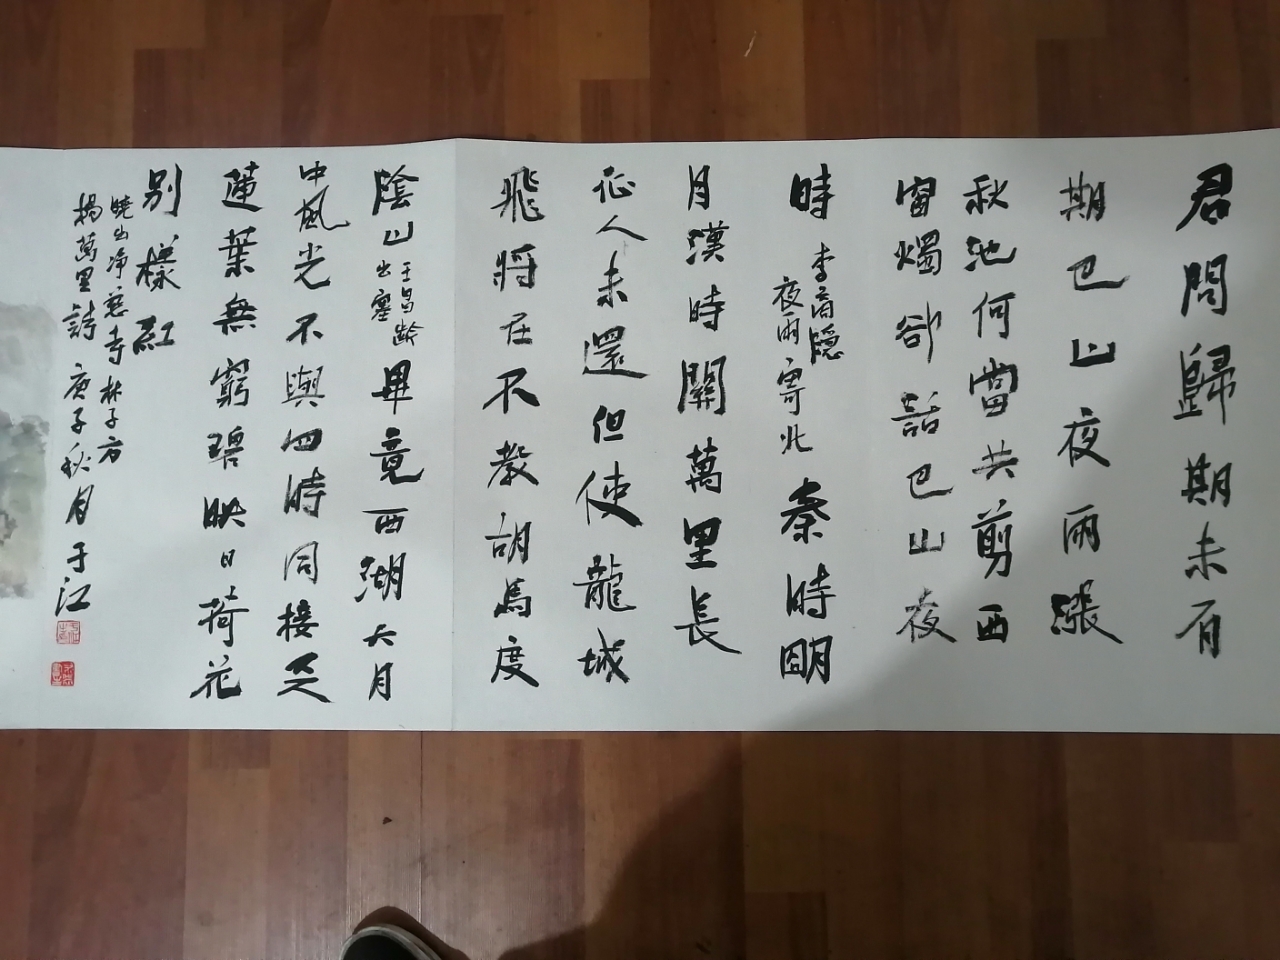 君問歸期未有
期巴山夜雨漲
秋池何當共剪西
窗燭卻話巴山夜
時 李商隱
夜雨寄北 秦時明
月漢時關萬里長
征人未還但使龍城
飛將在不教胡馬度
陰山 王昌齡
出塞 畢竟西湖六月
中風光不與四時同接天
蓮葉無窮碧映日荷花
別樣紅
曉出淨慈寺林子方
楊萬里詩 庚子秋月于江